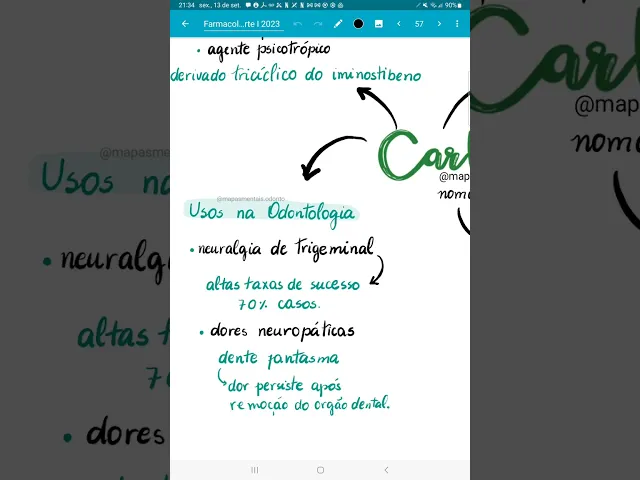 21:34 sex., 13 de set.
90%
Farmacol...rte I 2023
57
• agente psicotrópico
derivado tricíclico do iminostibeno
Car
@map
nom
@mapasmentais.odonto
Usos na Odontologia
• neuralgia de trigeminal
altas taxas de sucesso
70% casos.
• dores neuropáticas
dente fantasma
dor persiste após
remoção do orgão dental.
@mapasm
Usos na
• neuralgia
altas t
70
• dores
Carb
@map
nome